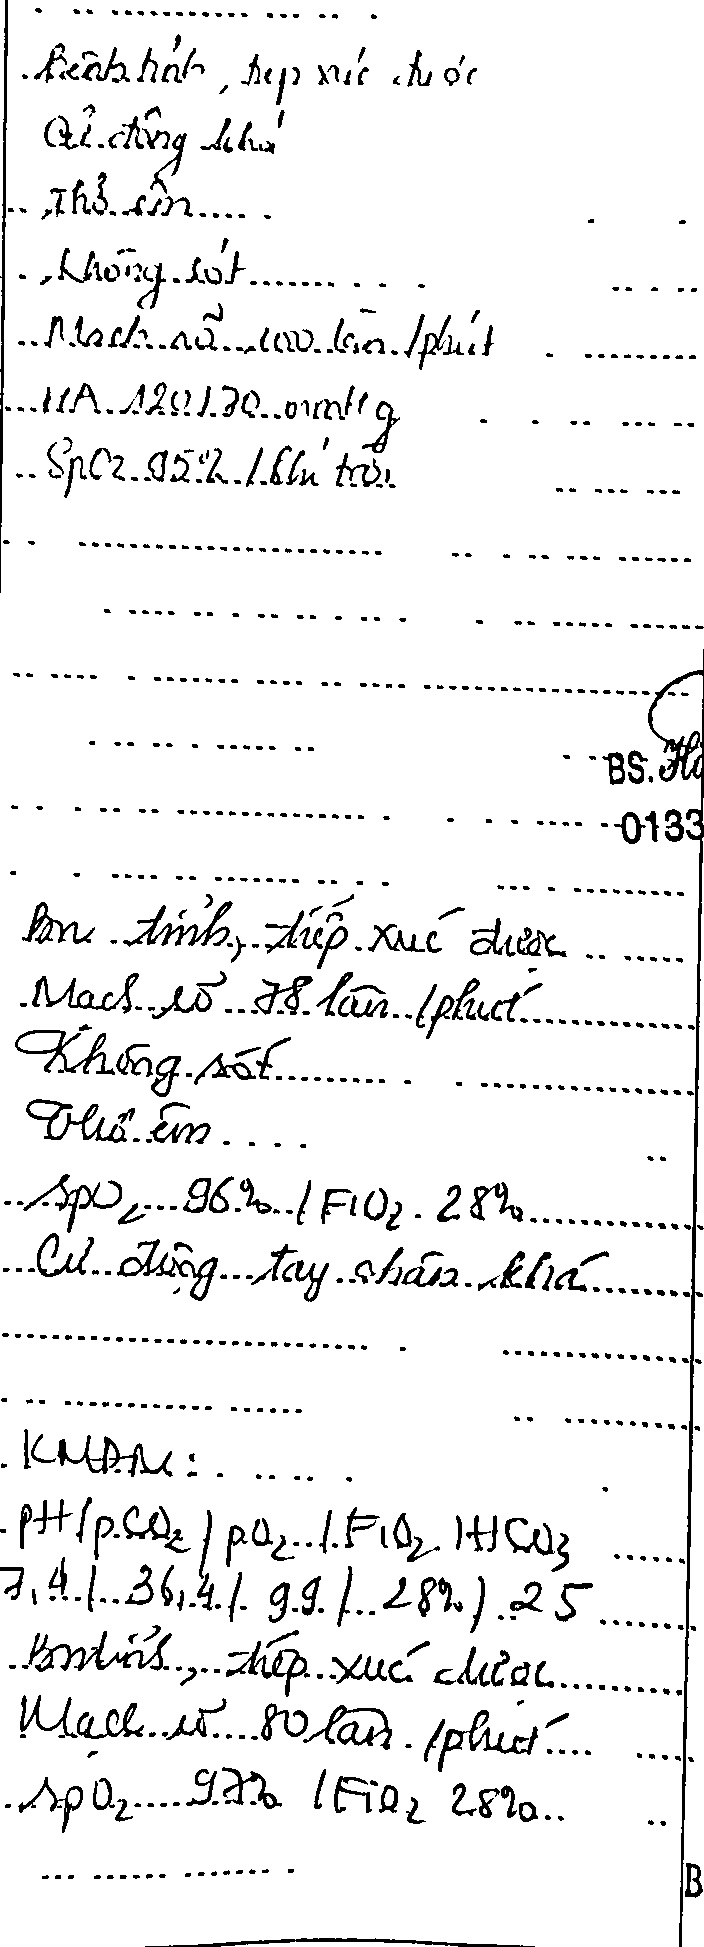 Bệnh tỉnh, tiếp xúc được
Cử động khá
Thở êm
Không sốt
Mạch rõ 100 lần/phút
HA 120/70 mmHg
SpO2 95% / khí trời
BS.
0133
Bn tỉnh, tiếp xúc được
Mạch rõ 78 lần/phút
Không sốt
Thở êm
SpO2 96% / FiO2 28%
Cử động tay chân khá
KMĐM:
pH/pCO2/pO2/FiO2/HCO3
7,4/36,4/99/28%/25
Bn tỉnh, tiếp xúc được
Mạch rõ 80 lần/phút
SpO2 97% / FiO2 28%
B